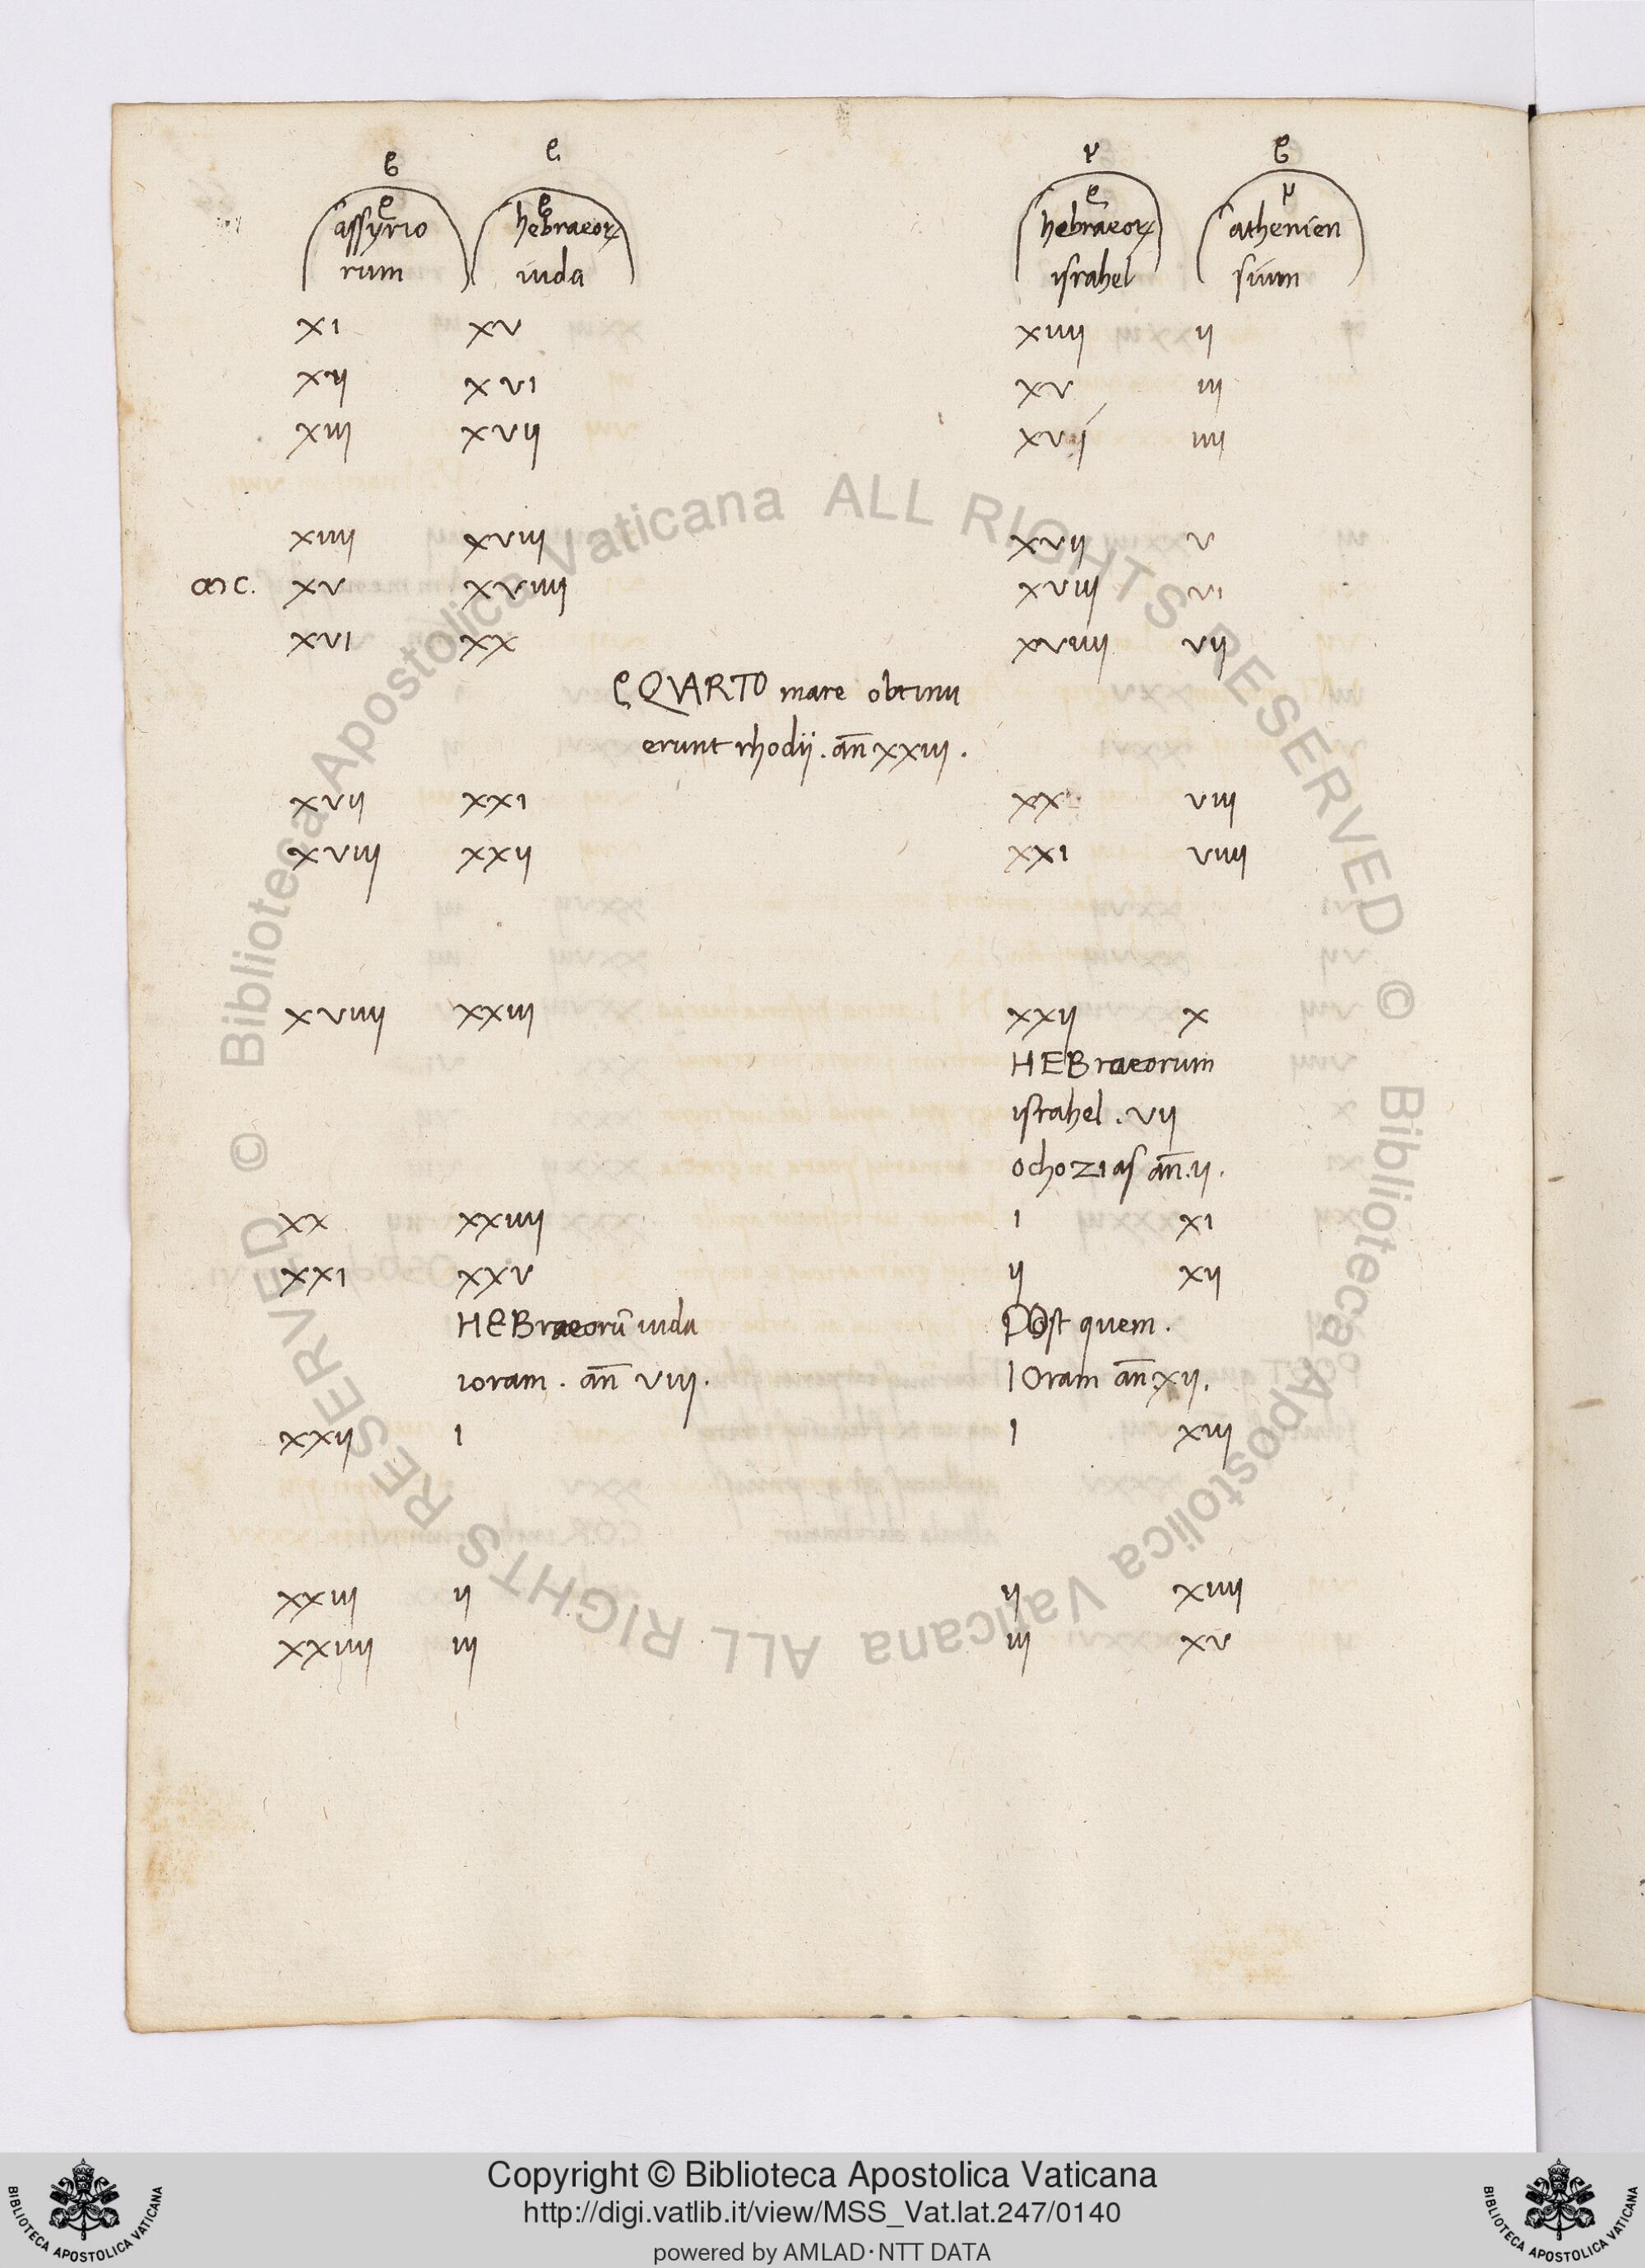 assyrio hebraeoꝝ hebraeoꝝ athenien
rum iuda israhel sium
xi xv xiiii ii
xii xvi xv iii
xiii xvii xvi iiii
xiiii xviii xvii v
xv xviiii xviii vi
xvi xx xviiii vii
QVARTO mare obtinu
erunt rhodii. an̄ xxiii.
xvii xxi xx viii
xviii xxii xxi viiii
xviiii xxiii xxii x
HEBraeorum
israhel. vii
ochozias an̄. ii.
xx xxiiii i xi
xxi xxv ii xii
HEBraeorū iuda POst quem.
ioram. an̄ viii. IOram an̄. xii.
xxii i i xiii
xxiii ii ii xiiii
xxiiii iii iii xv
© Biblioteca Apostolica Vaticana ALL RIGHTS RESERVED
© Biblioteca Apostolica Vaticana ALL RIGHTS RESERVED
Copyright © Biblioteca Apostolica Vaticana
http://digi.vatlib.it/view/MSS_Vat.lat.247/0140
powered by AMLAD·NTT DATA
BIBLIOTECA APOSTOLICA VATICANA
BIBLIOTECA APOSTOLICA VATICANA